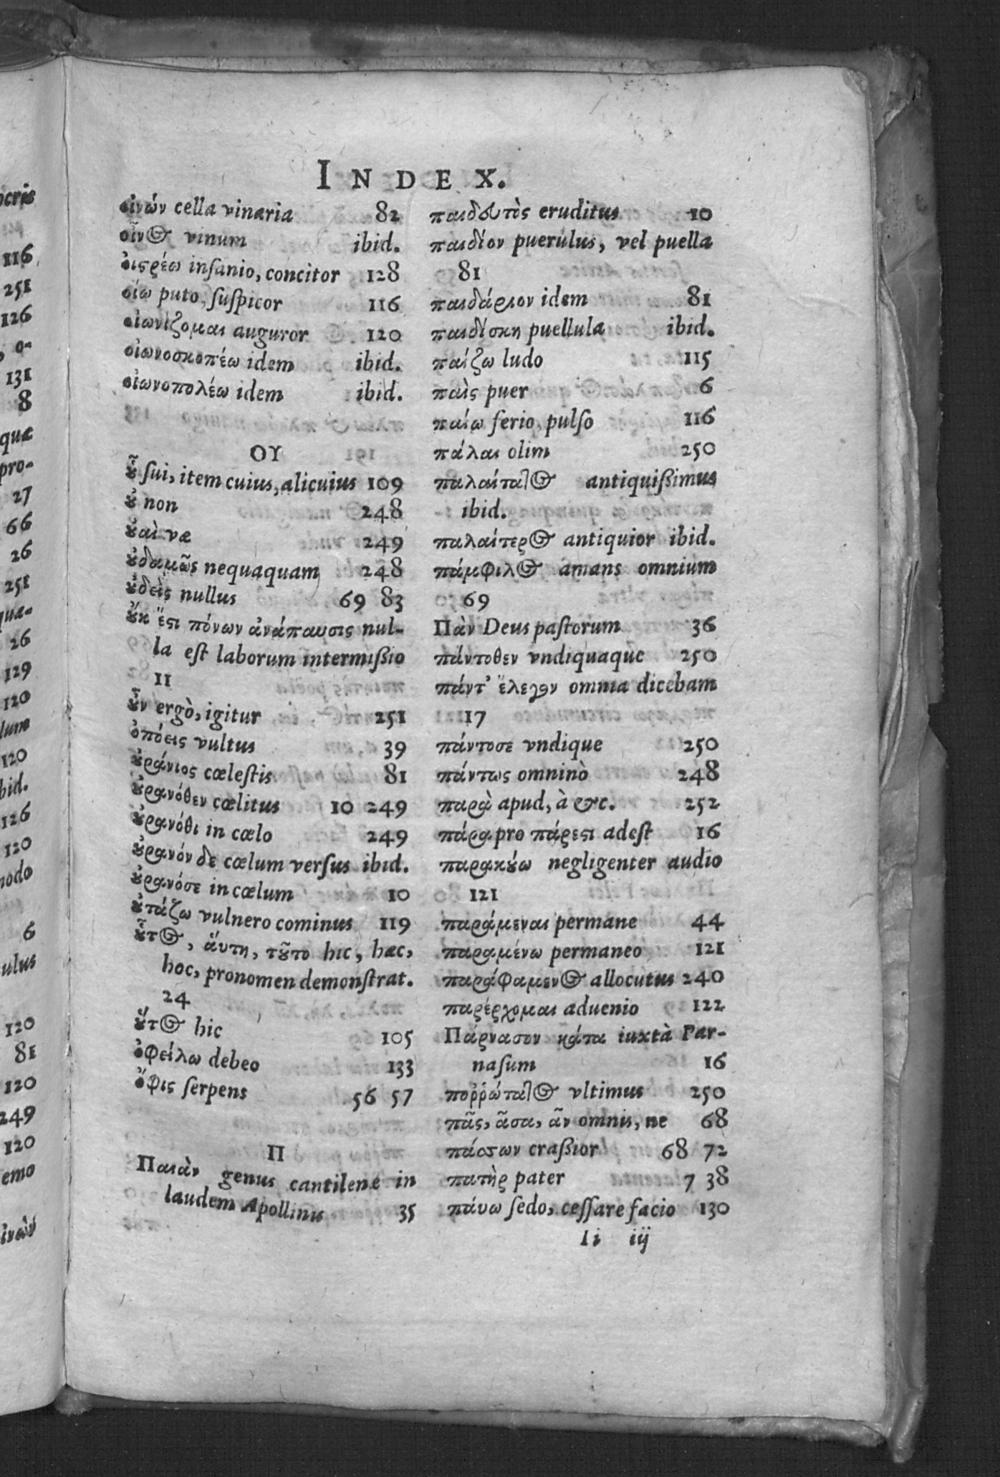 INDEX.
οἰνών cella vinaria 82
οἶνος vinum ibid.
οἰςρέω insanio, concitor 128
οἴω puto, suspicor 116
οἰωνίζομαι auguror 120
οἰωνοσκοπέω idem ibid.
οἰωνοπολέω idem ibid.
ΟΥ
οὗ sui, item cuius, alicuius 109
οὐ non 248
οὐαὶ væ 249
οὐδαμῶς nequaquam 248
οὐδεὶς nullus 69 83
οὔκ ἔςι πόνων ἀνάπαυσις nul-
la est laborum intermißio
11
οὖν ergò, igitur 251
ὀπόεις vultus 39
οὐράνιος cœlestis 81
οὐρανόθεν cœlitus 10 249
οὐρανόθι in cœlo 249
οὐρανόν δε cœlum versus ibid.
οὐρανόσε in cœlum 10
οὐτάζω vulnero cominus 119
οὗτος, αὕτη, τοῦτο hic, hæc,
hoc, pronomen demonstrat.
24
οὕτος hic 105
ὀφείλω debeo 133
ὄφις serpens 56 57
Π
Παιὰν genus cantilenæ in
laudem Apollinis 35
παιδευτὸς eruditus 10
παιδίον puerulus, vel puella
81
παιδάριον idem 81
παιδίσκη puellula ibid.
παίζω ludo 115
παὶς puer 6
παίω ferio, pulso 116
πάλαι olim 250
παλαίτατος antiquißimus
ibid.
παλαίτερος antiquior ibid.
πάμφιλος amans omnium
69
Πὰν Deus pastorum 36
πάντοθεν vndiquaque 250
πάντ' ἔλεγον omnia dicebam
17
πάντοσε vndique 250
πάντως omninò 248
παρὰ apud, à &c. 252
πάρα pro πάρεςι adest 16
παρακούω negligenter audio
121
παράμεναι permane 44
παραμένω permaneo 121
παράφαμενος allocutus 240
παρέρχομαι aduenio 122
Πάρνασον κάτα iuxtà Par-
nasum 16
ποῤῥώτατος vltimus 250
πᾶς, ᾶσα, ᾶν omnis, ne 68
πάσσων craßior 68 72
πατὴρ pater 7 38
πάυω sedo, cessare facio 130
Ii iij